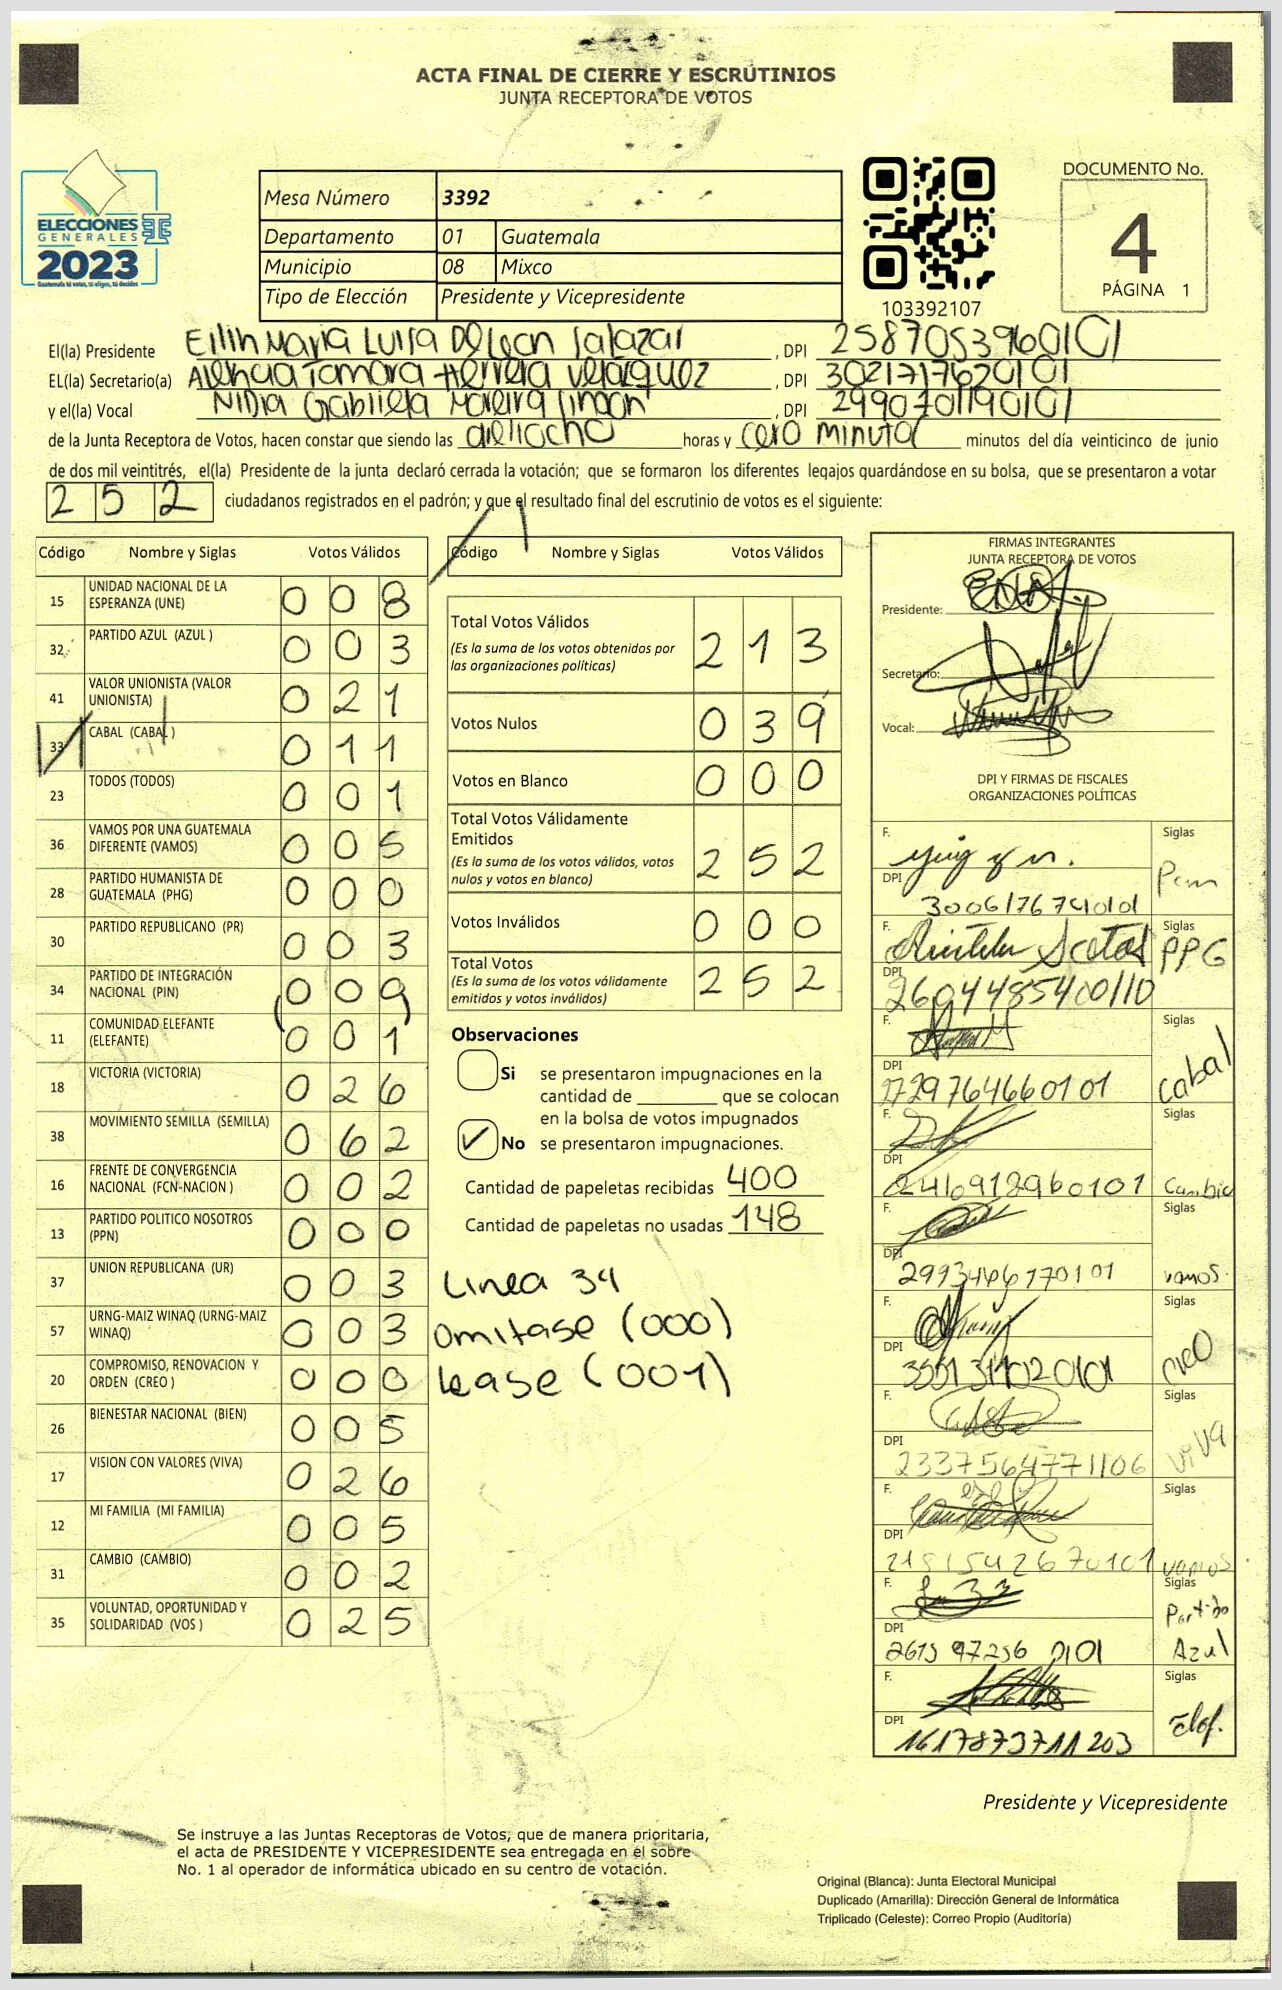 ACTA FINAL DE CIERRE Y ESCRÚTINIOS
JUNTA RECEPTORA DE VOTOS
ELECCIONES
GENERALES
2023
Guatemala tú votas, tú eliges, tú decides
Mesa Número 3392
Departamento 01 Guatemala
Municipio 08 Mixco
Tipo de Elección Presidente y Vicepresidente
103392107
DOCUMENTO No.
4
PÁGINA 1
El(la) Presidente Eilin Maria Luisa De Leon Salazar , DPI 2587053960101
EL(la) Secretario(a) Tamara Herrera Velazquez , DPI 3021717620101
y el(la) Vocal Nidia Gabriela Moreira , DPI 2990701190101
de la Junta Receptora de Votos, hacen constar que siendo las dieciocho horas y cero minutos minutos del día veinticinco de junio
de dos mil veintitrés, el(la) Presidente de la junta declaró cerrada la votación; que se formaron los diferentes legajos quardándose en su bolsa, que se presentaron a votar
252 ciudadanos registrados en el padrón; y que el resultado final del escrutinio de votos es el siguiente:
Código Nombre y Siglas Votos Válidos
15 UNIDAD NACIONAL DE LA ESPERANZA (UNE) 008
32 PARTIDO AZUL (AZUL ) 003
41 VALOR UNIONISTA (VALOR UNIONISTA) 021
33 CABAL (CABAL ) 011
23 TODOS (TODOS) 001
36 VAMOS POR UNA GUATEMALA DIFERENTE (VAMOS) 005
28 PARTIDO HUMANISTA DE GUATEMALA (PHG) 000
30 PARTIDO REPUBLICANO (PR) 003
34 PARTIDO DE INTEGRACIÓN NACIONAL (PIN) (009)
11 COMUNIDAD ELEFANTE (ELEFANTE) 001
18 VICTORIA (VICTORIA) 026
38 MOVIMIENTO SEMILLA (SEMILLA) 062
16 FRENTE DE CONVERGENCIA NACIONAL (FCN-NACION ) 002
13 PARTIDO POLITICO NOSOTROS (PPN) 000
37 UNION REPUBLICANA (UR) 003
57 URNG-MAIZ WINAQ (URNG-MAIZ WINAQ) 003
20 COMPROMISO, RENOVACION Y ORDEN (CREO ) 000
26 BIENESTAR NACIONAL (BIEN) 005
17 VISION CON VALORES (VIVA) 026
12 MI FAMILIA (MI FAMILIA) 005
31 CAMBIO (CAMBIO) 002
35 VOLUNTAD, OPORTUNIDAD Y SOLIDARIDAD (VOS ) 025
Código Nombre y Siglas Votos Válidos
Total Votos Válidos 213
(Es la suma de los votos obtenidos por
las organizaciones políticas)
Votos Nulos 039
Votos en Blanco 000
Total Votos Válidamente
Emitidos 252
(Es la suma de los votos válidos, votos
nulos y votos en blanco)
Votos Inválidos 000
Total Votos 252
(Es la suma de los votos válidamente
emitidos y votos inválidos)
Observaciones
Si se presentaron impugnaciones en la
cantidad de ________ que se colocan
en la bolsa de votos impugnados
No se presentaron impugnaciones.
Cantidad de papeletas recibidas 400
Cantidad de papeletas no usadas 148
Linea 34
Omitase (000)
Lease (001)
FIRMAS INTEGRANTES
JUNTA RECEPTORA DE VOTOS
Presidente:
Secretario:
Vocal:
DPI Y FIRMAS DE FISCALES
ORGANIZACIONES POLÍTICAS
F. Siglas
DPI 300617674101
F. Siglas PPG
DPI 2604485400110
F. Siglas Cabal
DPI 1729764660101
F. Siglas Cambio
DPI 2416912960101
F. Siglas vamos.
DPI 2993466170101
F. Siglas
DPI
F. Siglas VIVA
DPI 2337564771106
F. Siglas vamos
DPI 2181542670101
F. Siglas Partido Azul
DPI 2615 97256 0101
F. Siglas
DPI 1617873711203
Presidente y Vicepresidente
Se instruye a las Juntas Receptoras de Votos, que de manera prioritaria,
el acta de PRESIDENTE Y VICEPRESIDENTE sea entregada en el sobre
No. 1 al operador de informática ubicado en su centro de votación.
Original (Blanca): Junta Electoral Municipal
Duplicado (Amarilla): Dirección General de Informática
Triplicado (Celeste): Correo Propio (Auditoría)